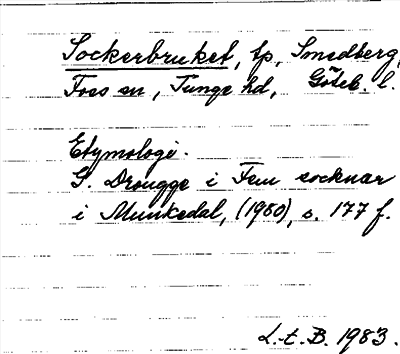 Sockerbruket, tp, Smedberg,
Foss sn, Tunge hd, Göteb. l.
Etymologi.
G. Drougge i Fem socknar
i Munkedal, (1980), s. 177 f.
L.t.B. 1983.